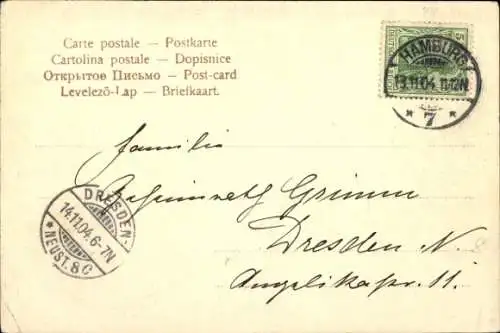 Carte postale — Postkarte
Cartolina postale — Dopisnice
Открытое Письмо — Post-card
Levelező-Lap — Briefkaart.
HAMBURG
13.11.04. 11-12N.
* 7 *
Familie
Geheimrath Grimm
Dresden N.
Angelikastr. 11.
DRESDEN-
14.11.04. 6-7N
* NEUST. 8 C